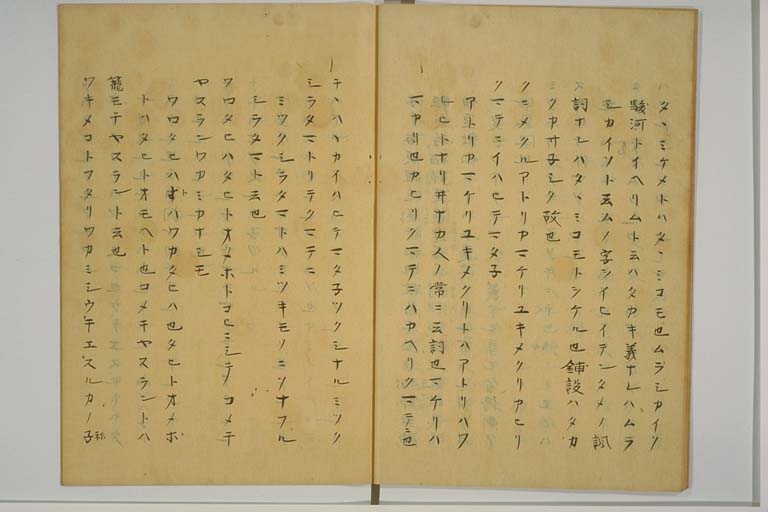 タヽミケメトハタヽミコモ也ムラシカイソ
駿河トイヘリムト云ハタカキ義ナレハムラ
シカイソト云ムノ字シイヒイテンタメノ諷
詞ナレハタヽミコモトシケル也鋪設ハタカ
クカサ子シク故也
クニメクルアトリカマケリユキメクリアヒリ
クマテニイハヒテマタ子
アトリカマケリユキメクリトハアトリハワ
タヒトナリ井ナカ人ノ常ニ云詞也マケリハ
マカリ也カヒリクマテニハカヘリクマテニ也
チヽハヽカイハヒテマタ子ツクシナルミツク
シラタマトリテクマテニ
ミツクシラタマトハミツキモノニソナフル
シラタマト云也
ワロタヒハタヒトオメホトコヒニシテノコメチ
ヤスランワカミカナシモ
ワロタヒハトハワカタヒハ也タヒトオメホ
トハタヒトオモヘト也コメチヤスラントハ
籠モチヤスラント云也
ワキメコトフタリワカミシウチエスルカノ子